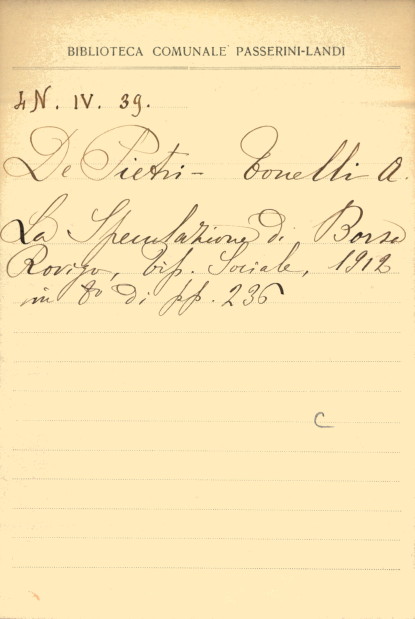 BIBLIOTECA COMUNALE PASSERINI-LANDI
4N. IV. 39.
De Pietri-Tonelli A.
La Speculazione di Borsa
Rovigo, tip. Sociale, 1912
in 8º di pp. 236
C